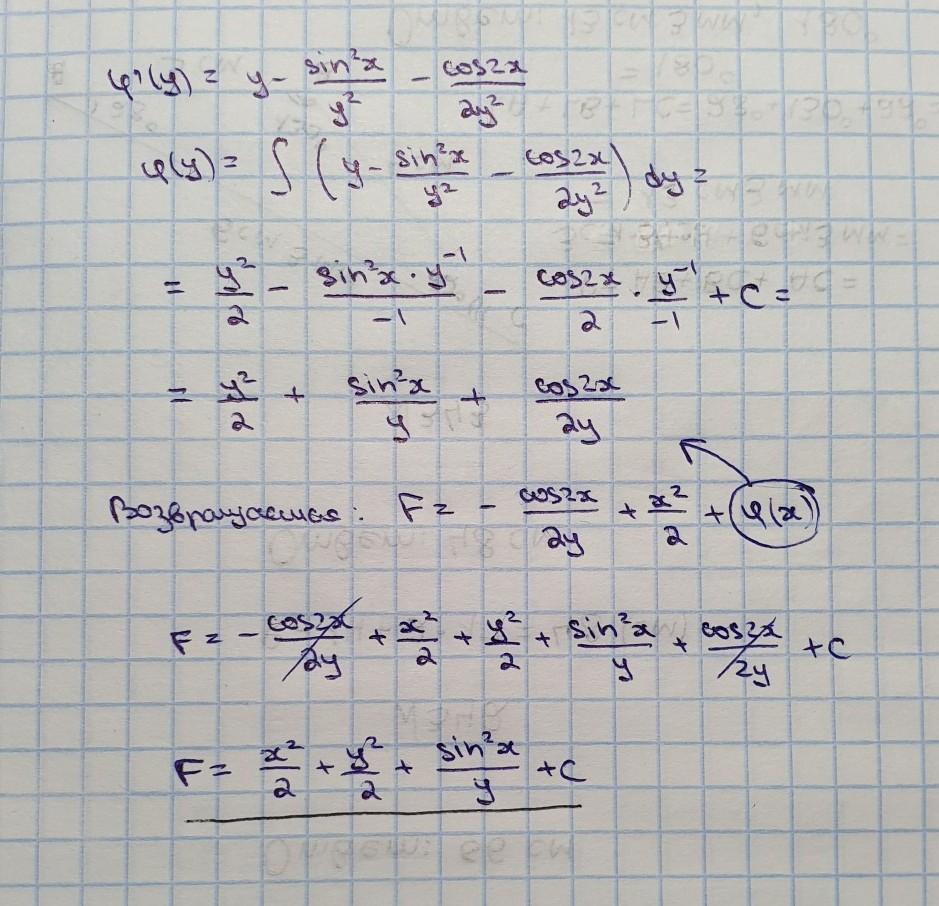 φ'(y) = y - sin²x/y² - cos2x/2y²
φ(y) = ∫ (y - sin²x/y² - cos2x/2y²) dy =
= y²/2 - sin²x · y⁻¹/-1 - cos2x/2 · y⁻¹/-1 + C =
= y²/2 + sin²x/y + cos2x/2y
Возвращаемся: F = - cos2x/2y + x²/2 + φ(x)
F = - cos2x/2y + x²/2 + y²/2 + sin²x/y + cos2x/2y + C
F = x²/2 + y²/2 + sin²x/y + C